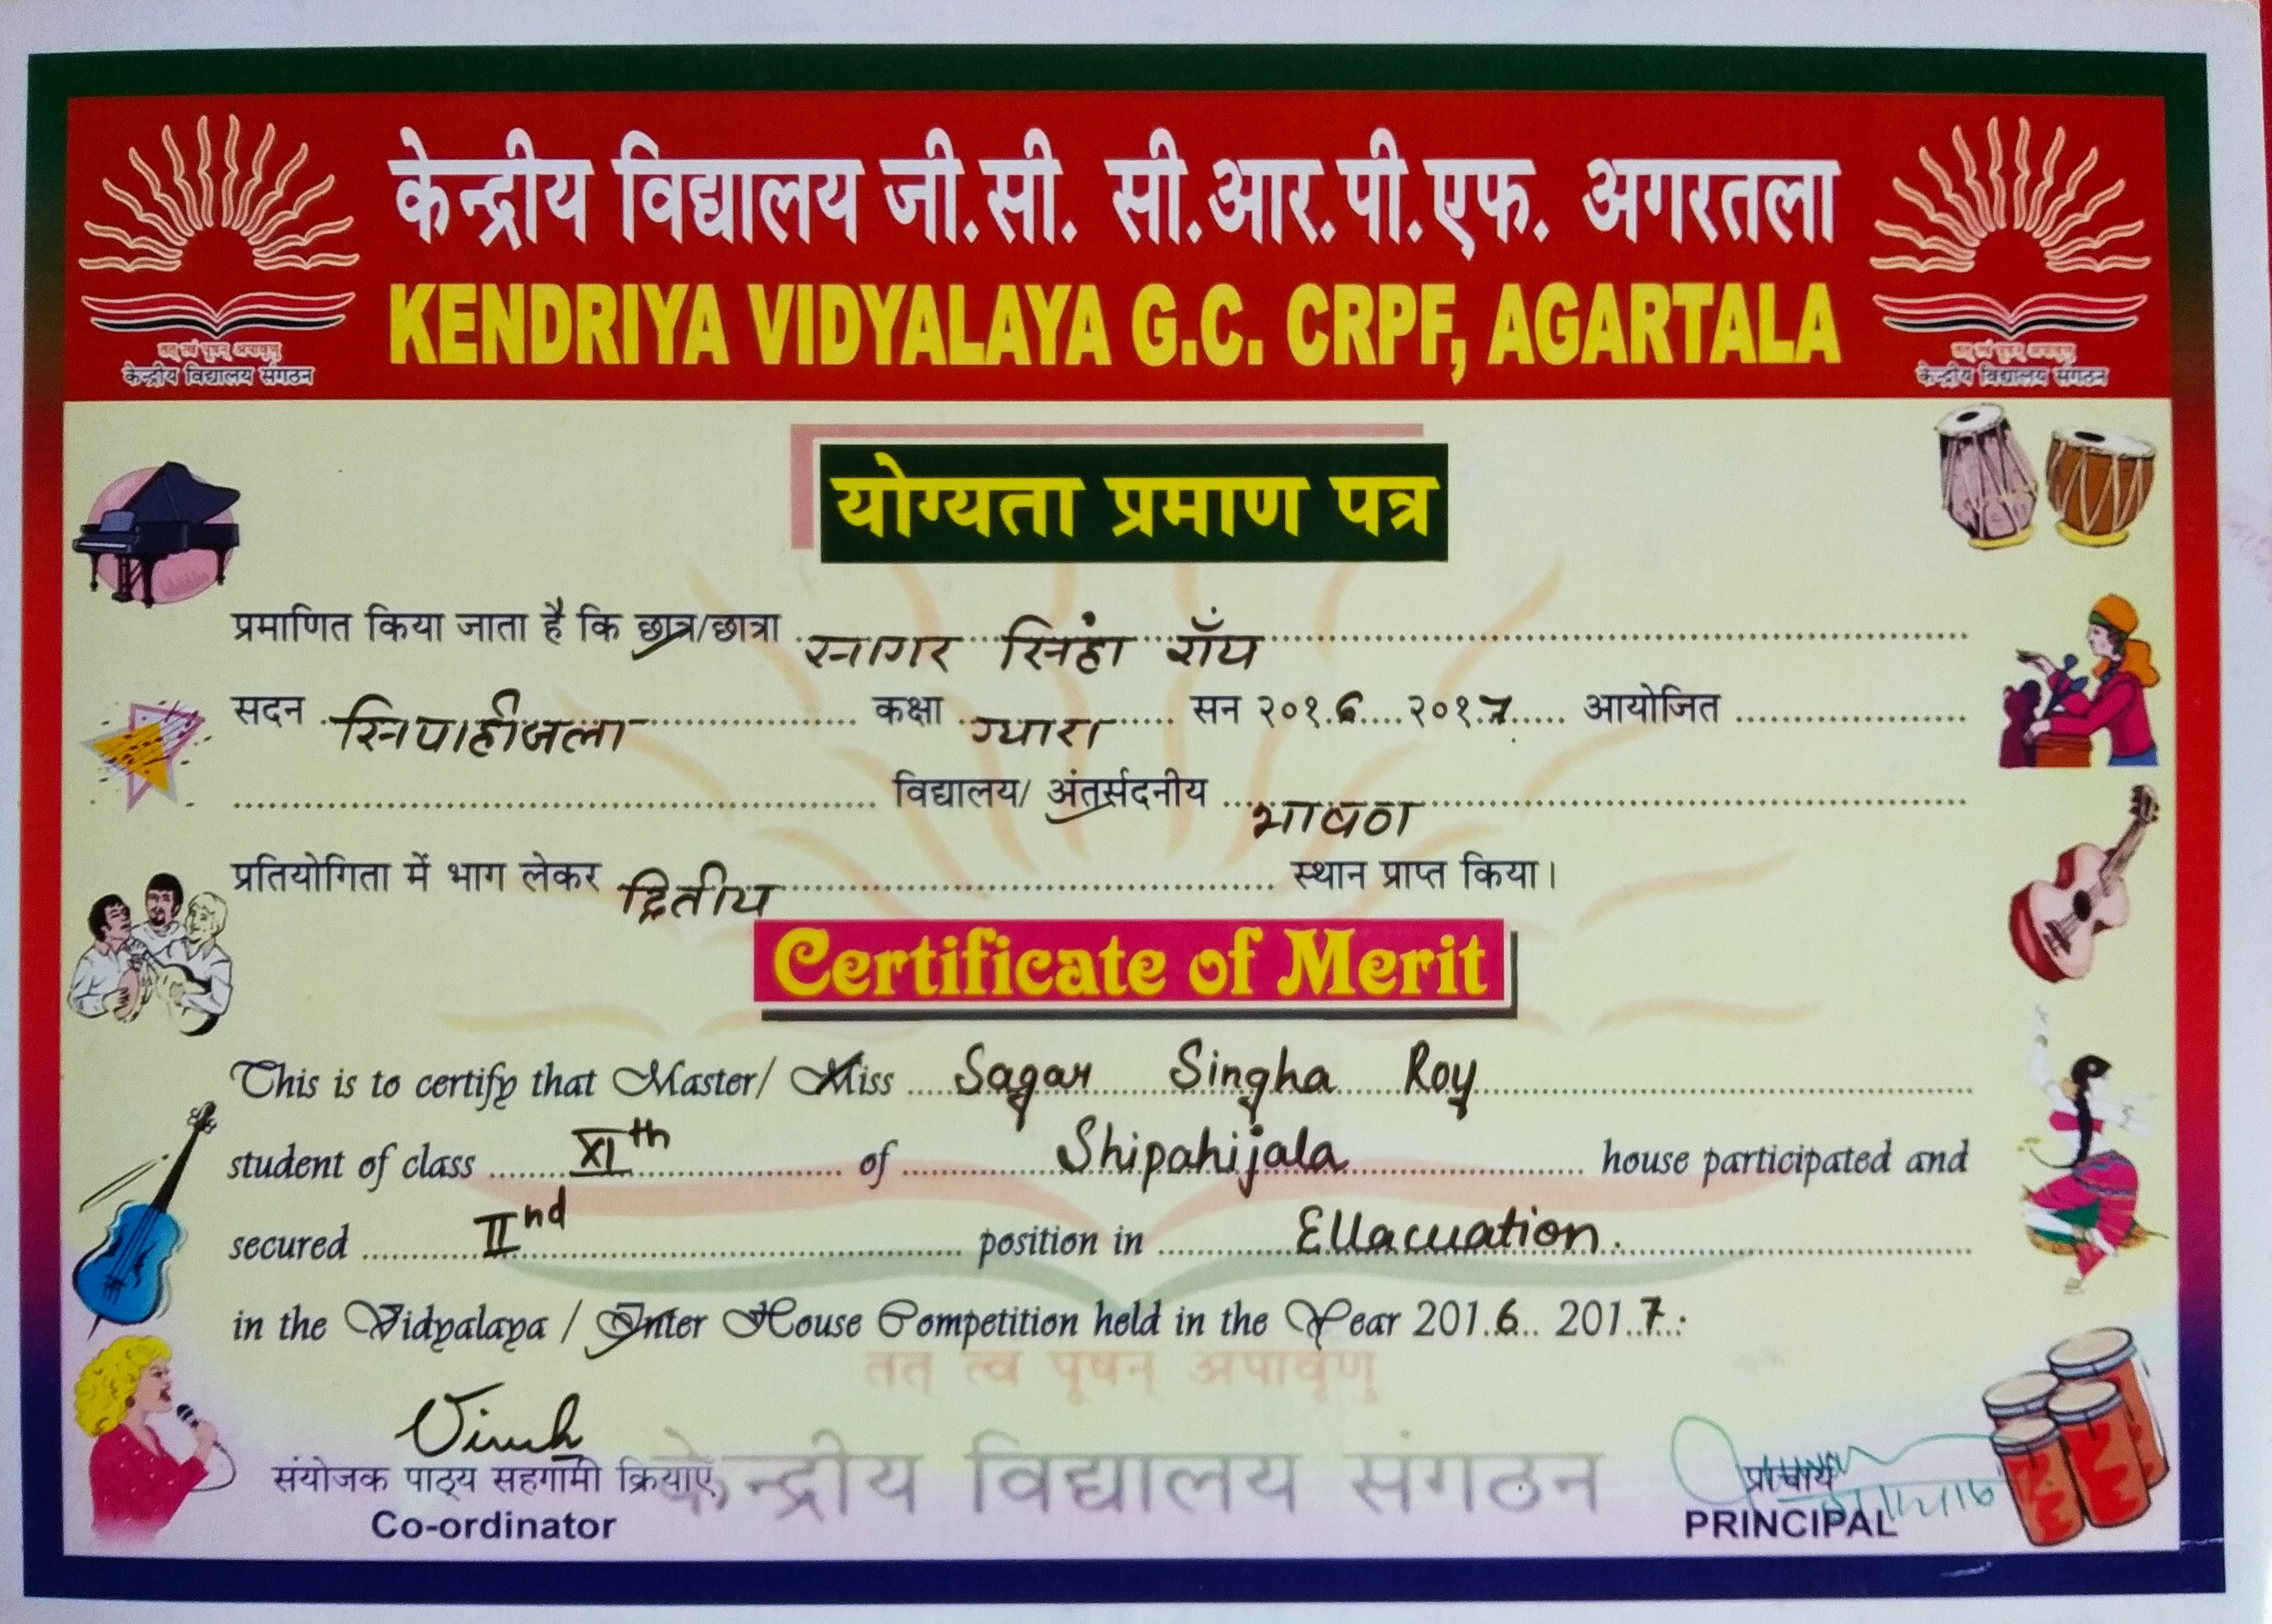 केन्द्रीय विद्यालय जी.सी. सी.आर.पी.एफ. अगरतला
KENDRIYA VIDYALAYA G.C. CRPF, AGARTALA
तत् त्वं पूषन् अपावृणु
केन्द्रीय विद्यालय संगठन
तत् त्वं पूषन् अपावृणु
केन्द्रीय विद्यालय संगठन
योग्यता प्रमाण पत्र
प्रमाणित किया जाता है कि छात्र/छात्रा सागर सिंहा रॉय
सदन सिपाहीजला कक्षा ग्यारा सन २०१.6....२०१.7..... आयोजित
विद्यालय/ अंतर्सदनीय भाषण
प्रतियोगिता में भाग लेकर द्वितीय स्थान प्राप्त किया।
Certificate of Merit
This is to certify that Master/ Miss Sagar Singha Roy
student of class XIth of Shipahijala house participated and
secured IInd position in Ellacuation.
in the Vidyalaya / Inter House Competition held in the Year 201.6.. 201.7..
तत् त्व पूषन् अपावृणु
केन्द्रीय विद्यालय संगठन
संयोजक पाठ्य सहगामी क्रियाएं
Co-ordinator
प्राचार्य
PRINCIPAL